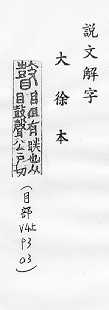 說文解字
大徐本
瞽 目但有眹也从
目鼓聲公戶切
(目部
03)